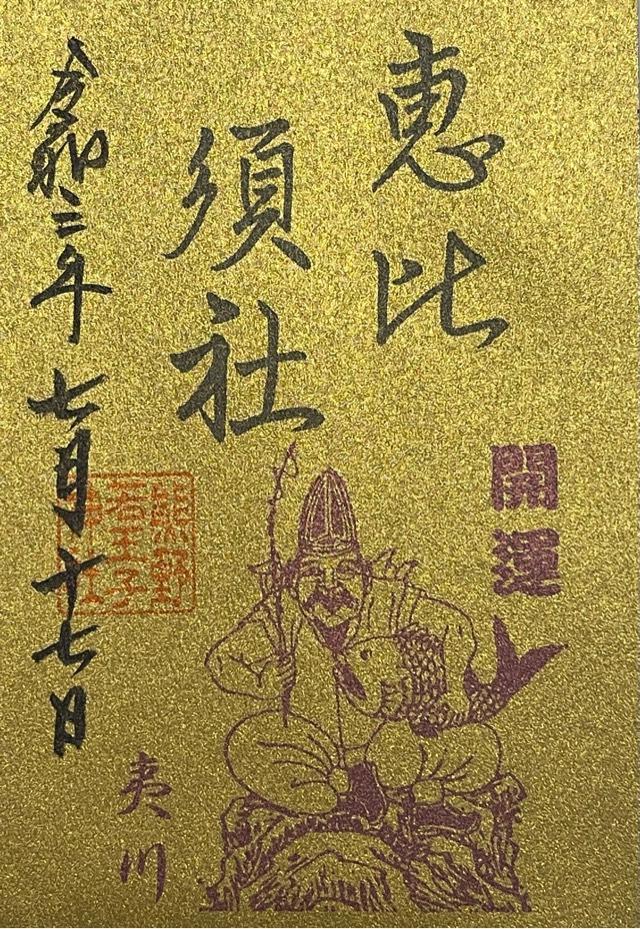 恵比
須社
開運
夷川
熊野
若王子
神社
令和二年七月十七日